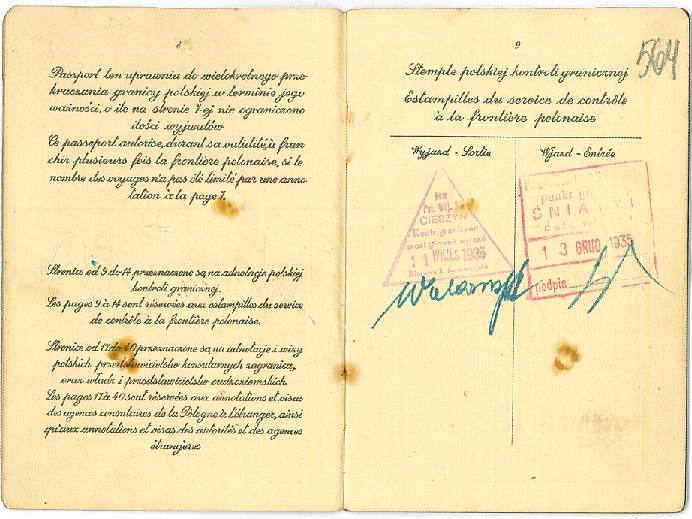 8
Paszport ten uprawnia do wielokrotnego prze-
kraczania granicy polskiej w terminie jego
ważności, o ile na stronie 7-ej nie ograniczono
ilości wyjazdów
Ce passeport autorise, durant sa validité, à fran
chir plusieurs fois la frontière polonaise, si le
nombre des voyages n'a pas été limité par une anno
tation à la page 7.
Stronice od 9 do 14 przeznaczone są na adnotacje polskiej
kontroli granicznej.
Les pages 9 à 14 sont réservées aux estampilles du service
de contrôle à la frontière polonaise.
Stronice od 17 do 40 przeznaczone są na adnotacje i wizy
polskich przedstawicielstw konsularnych zagranicą,
oraz władz i przedstawicielstw cudzoziemskich.
Les pages 17 à 40 sont réservées aux annotations et visas
des agences consulaires de la Pologne à l'étranger, ainsi
qu'aux annotations et visas des autorités et des agences
étrangères
9
564
Stemple polskiej kontroli granicznej
Estampilles du service de contrôle
à la frontière polonaise
Wyjazd - Sortie
Wjazd - Entrée
CIESZYN
Kontr. graniczna
most główny wyjazd
11 WRZES 1935
punkt
ŚNIATYN
data
13 GRUD 1935
podpis